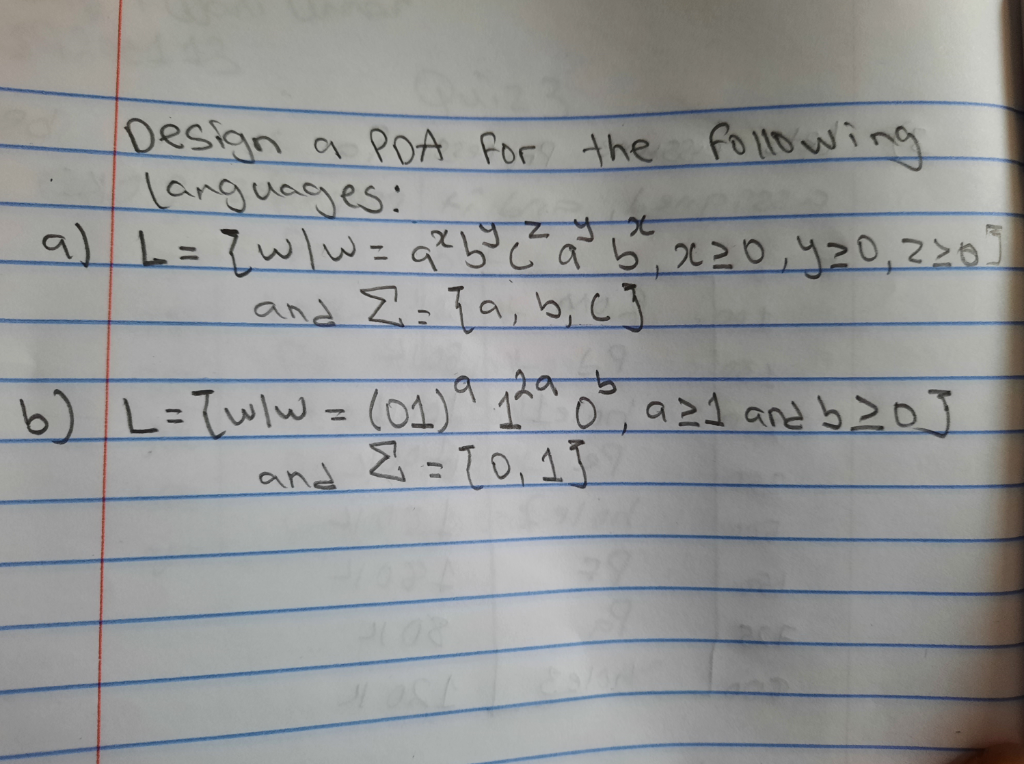 Design a PDA for the following
languages:
a) L = {w|w = a^x b^y c^z a^y b^x, x≥0, y≥0, z≥0}
and Σ = {a, b, c}
b) L = {w|w = (01)^a 1^2a 0^b, a≥1 and b≥0}
and Σ = {0, 1}